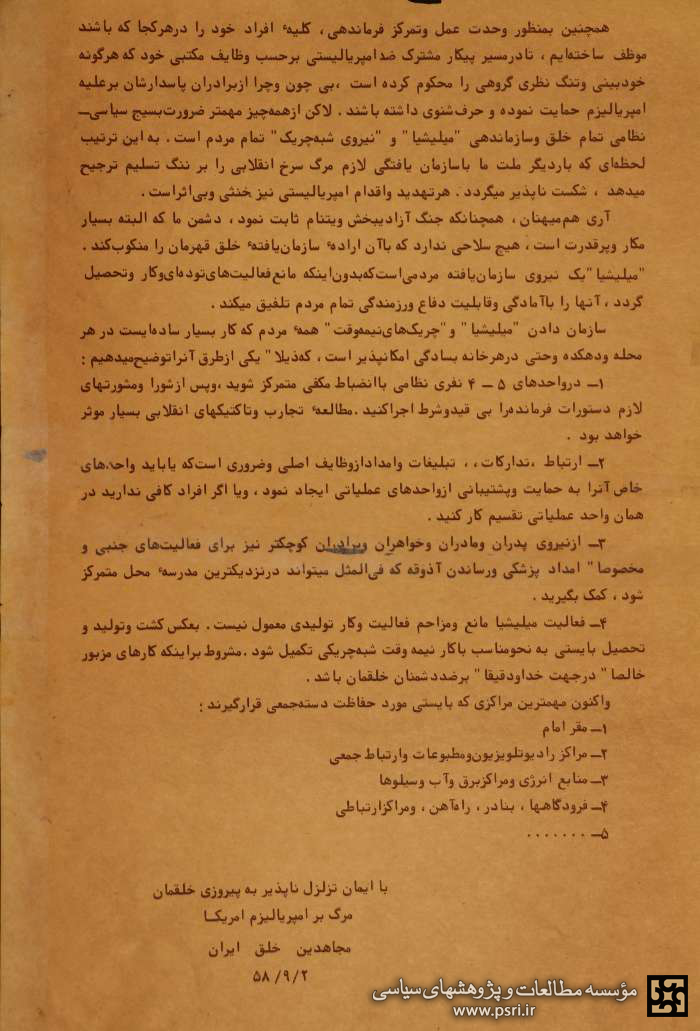 همچنین بمنظور وحدت عمل وتمرکز فرماندهی، کلیهٔ افراد خود را درهرکجا که باشند
موظف ساخته‌ایم، تادرمسیر پیکار مشترک ضدامپریالیستی برحسب وظایف مکتبی خود که هرگونه
خودبینی وتنگ نظری گروهی را محکوم کرده است، بی چون وچرا ازبرادران پاسدارشان برعلیه
امپریالیزم حمایت نموده و حرف‌شنوی داشته باشند. لاکن ازهمه‌چیز مهمتر ضرورت‌بسیج سیاسی–
نظامی تمام خلق وسازماندهی "میلیشیا" و "نیروی شبه‌چریک" تمام مردم است. به این ترتیب
لحظه‌ای که باردیگر ملت ما باسازمان یافتگی لازم مرگ سرخ انقلابی را بر ننگ تسلیم ترجیح
میدهد، شکست ناپذیر میگردد. هرتهدید واقدام امپریالیستی نیز خنثی وبی‌اثراست.
آری هم‌میهنان، همچنانکه جنگ آزادیبخش ویتنام ثابت نمود، دشمن ما که البته بسیار
مکار وپرقدرت است، هیچ سلاحی ندارد که باآن ارادهٔ سازمان‌یافتهٔ خلق قهرمان را منکوب‌کند.
"میلیشیا" یک نیروی سازمان‌یافته مردمی‌است‌که‌بدون‌اینکه مانع‌فعالیت‌های‌توده‌ای‌وکار وتحصیل
گردد، آنها را باآمادگی وقابلیت دفاع ورزمندگی تمام مردم تلفیق میکند.
سازمان دادن "میلیشیا" و "چریک‌های‌نیمه‌وقت" همهٔ مردم که کار بسیار ساده‌ایست در هر
محله ودهکده وحتی درهرخانه بسادگی امکانپذیر است، که‌ذیلا" یکی ازطرق آنراتوضیح‌میدهیم:
۱– درواحدهای ۵ – ۴ نفری نظامی باانضباط مکفی متمرکز شوید، وپس ازشورا ومشورتهای
لازم دستورات فرمانده‌را بی قیدوشرط اجراکنید. مطالعهٔ تجارب وتاکتیکهای انقلابی بسیار موثر
خواهد بود.
۲– ارتباط، تدارکات،، تبلیغات وامدادازوظایف اصلی وضروری است‌که یاباید واحدهای
خاص آنرا به حمایت وپشتیبانی ازواحدهای عملیاتی ایجاد نمود، ویا اگر افراد کافی ندارید در
همان واحد عملیاتی تقسیم کار کنید.
۳– ازنیروی پدران ومادران وخواهران وبرادران کوچکتر نیز برای فعالیت‌های جنبی و
مخصوصا" امداد پزشکی ورساندن آذوقه که فی‌المثل میتواند درنزدیکترین مدرسهٔ محل متمرکز
شود، کمک بگیرید.
۴– فعالیت میلیشیا مانع ومزاحم فعالیت وکار تولیدی معمول نیست. بعکس کشت وتولید و
تحصیل بایستی به نحومناسب باکار نیمه وقت شبه‌چریکی تکمیل شود. مشروط براینکه کارهای مزبور
خالصا" درجهت خداودقیقا" برضددشمنان خلقمان باشد.
واکنون مهمترین مراکزی که بایستی مورد حفاظت دسته‌جمعی قرارگیرند:
۱– مقر امام
۲– مراکز رادیوتلویزیون‌ومطبوعات وارتباط جمعی
۳– منابع انرژی ومراکزبرق وآب وسیلوها
۴– فرودگاهها، بنادر، راه‌آهن، ومراکزارتباطی
۵– . . . . . . .
با ایمان تزلزل ناپذیر به پیروزی خلقمان
مرگ بر امپریالیزم امریکا
مجاهدین خلق ایران
۵۸/۹/۲
مؤسسه مطالعات و پژوهشهای سیاسی
www.psri.ir